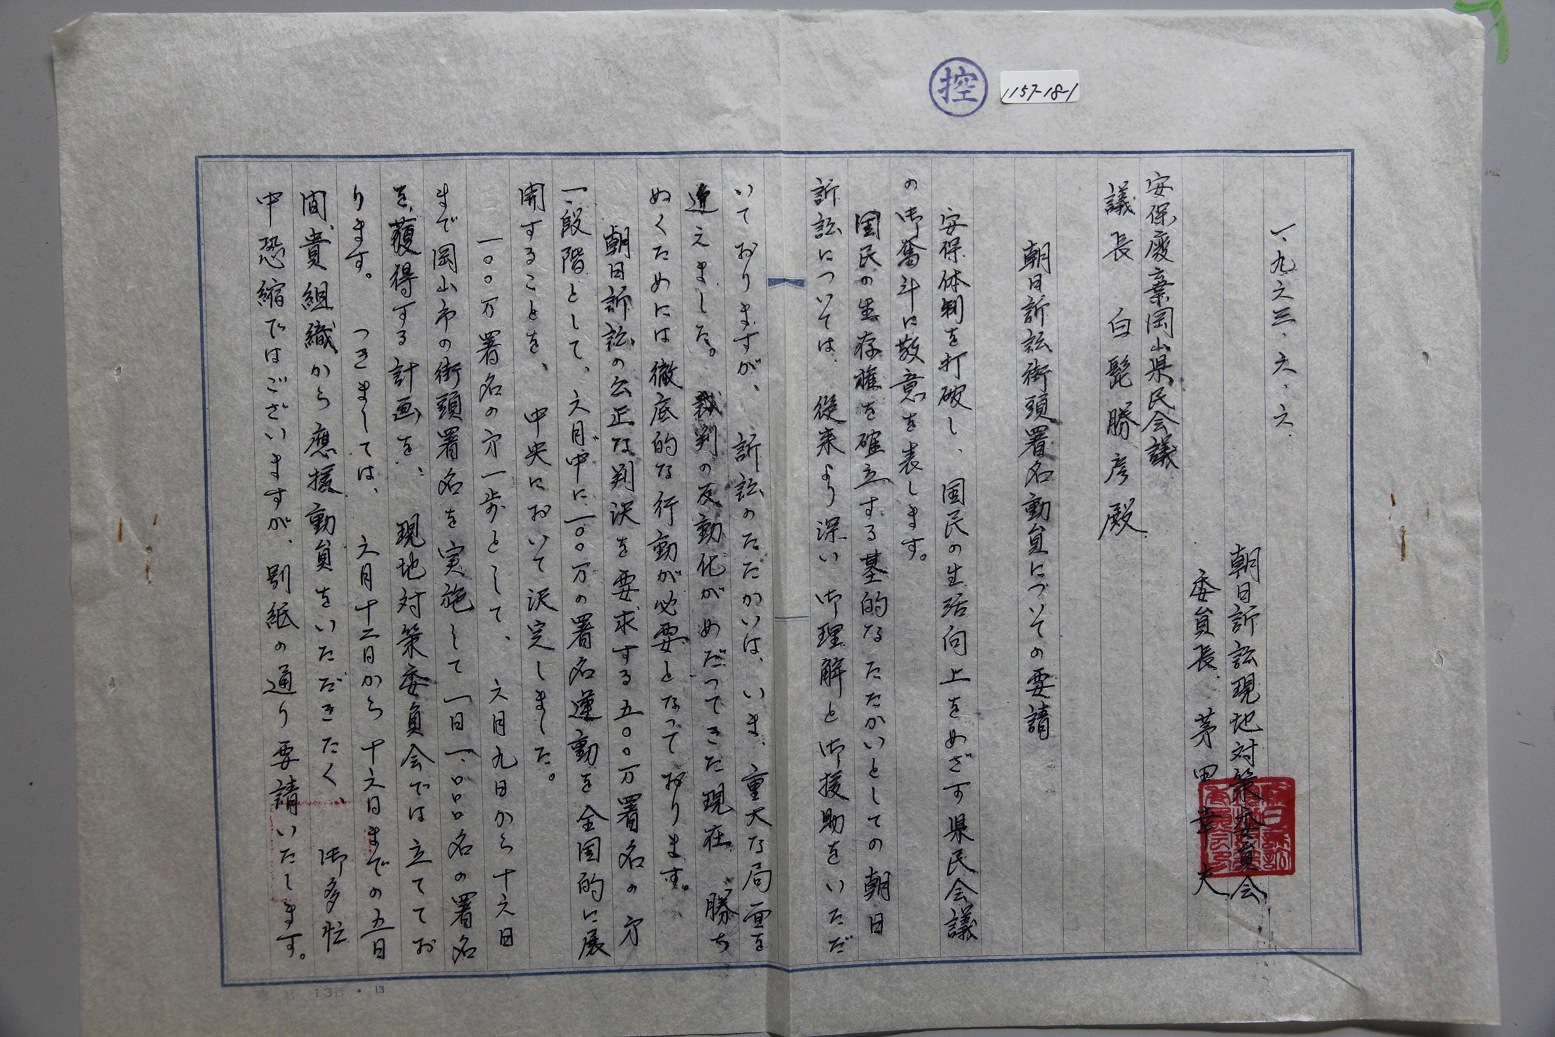 控
1157-18-1
一、九六三、六、六、
朝日訴訟現地対策委員会
委員長 茅野幸夫
安保廃棄岡山県民会議
議長 白髭勝彦殿
朝日訴訟街頭署名動員についての要請
安保体制を打破し、国民の生活向上をめざす県民会議
の御奮斗に敬意を表します。
国民の生存権を確立する基的なたたかいとしての朝日
訴訟については、従来より深い御理解と御援助をいただ
いておりますが、訴訟のたたかいは、いま、重大な局面を
迎えました。裁判の反動化がめだってきた現在、勝ち
ぬくためには徹底的な行動が必要となっております。
朝日訴訟の公正な判決を要求する五〇〇万署名の才
一段階として、六月中に一〇〇万の署名運動を全国的に展
開することを、中央において決定しました。
一〇〇万署名の才一歩として、六月九日から十六日
まで岡山市の街頭署名を実施して一日一、〇〇〇名の署名
を、獲得する計画を、現地対策委員会では立ててお
ります。 つきましては、六月十二日から十六日までの五日
間、貴組織から應援動員をいただきたく、御多忙
中恐縮ではございますが、別紙の通り要請いたします。
13行・13